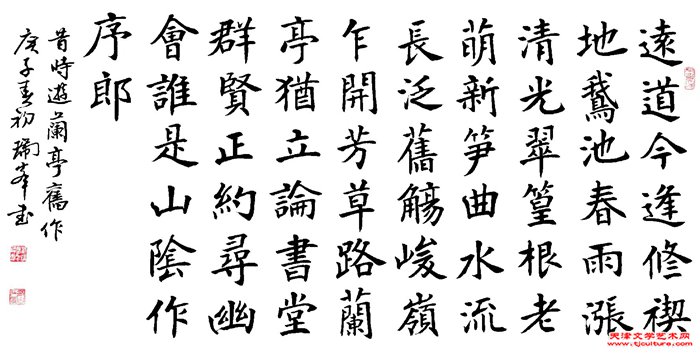 遠道今逢修禊
地鵝池春雨漲
清光翠篁根老
萌新笋曲水流
長泛舊觴峻嶺
乍開芳草路蘭
亭猶立論書堂
群賢正約尋幽
會誰是山陰作
序郎
昔時遊蘭亭舊作
庚子春初瑞峰書
天津文学艺术网
www.tjculture.com